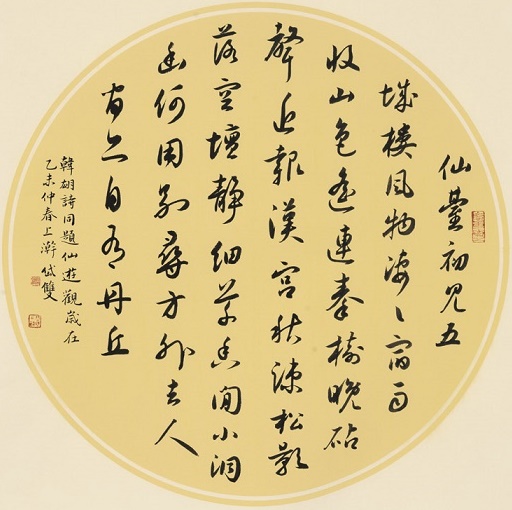 仙臺初見五
城樓風物淒〻宿雨
收山色遙連秦樹晚砧
聲近報漢宮秋疎松影
落空壇靜細草香閒小洞
幽何用別尋方外去人
間亦自有丹丘
韓翃詩同題仙遊觀歲在
乙未仲春上澣